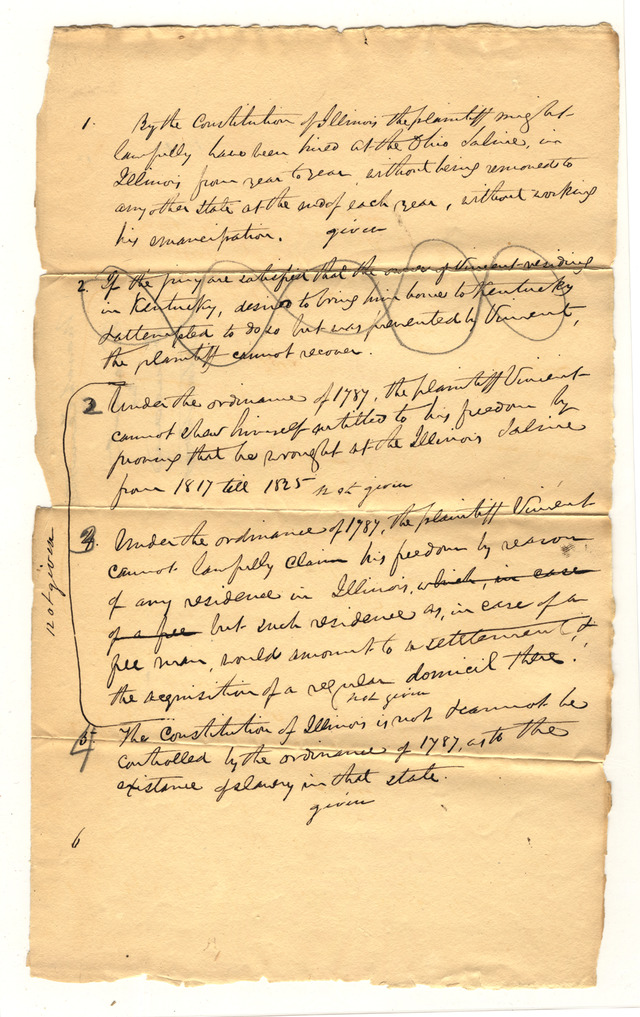 1. By the Constitution of Illinois the plaintiff might
lawfully have been hired at the Ohio Saline, in
Illinois from year to year, without being removed to
any other state at the end of each year, without working
his emancipation. given
2. If the jury are satisfied that the owner of Vincent residing
in Kentucky, desired to bring him home to Kentucky
& attempted to do so but was prevented by Vincent,
the plaintiff cannot recover.
2 Under the ordinance of 1787, the plaintiff Vincent
cannot shew himself entitled to his freedom by
proving that he wrought at the Illinois Saline
from 1817 till 1825 not given
3. Under the ordinance of 1787, the plaintiff Vincent
cannot lawfully claim his freedom by reason
of any residence in Illinois, which, in case
of a free but such residence as, in case of a
free man, would amount to a settlement, &
the acquisition of a regular domicil there.
not given
not given
4 The Constitution of Illinois is not & cannot be
controlled by the ordinance of 1787, as to the
existance of slavery in that state.
given
6